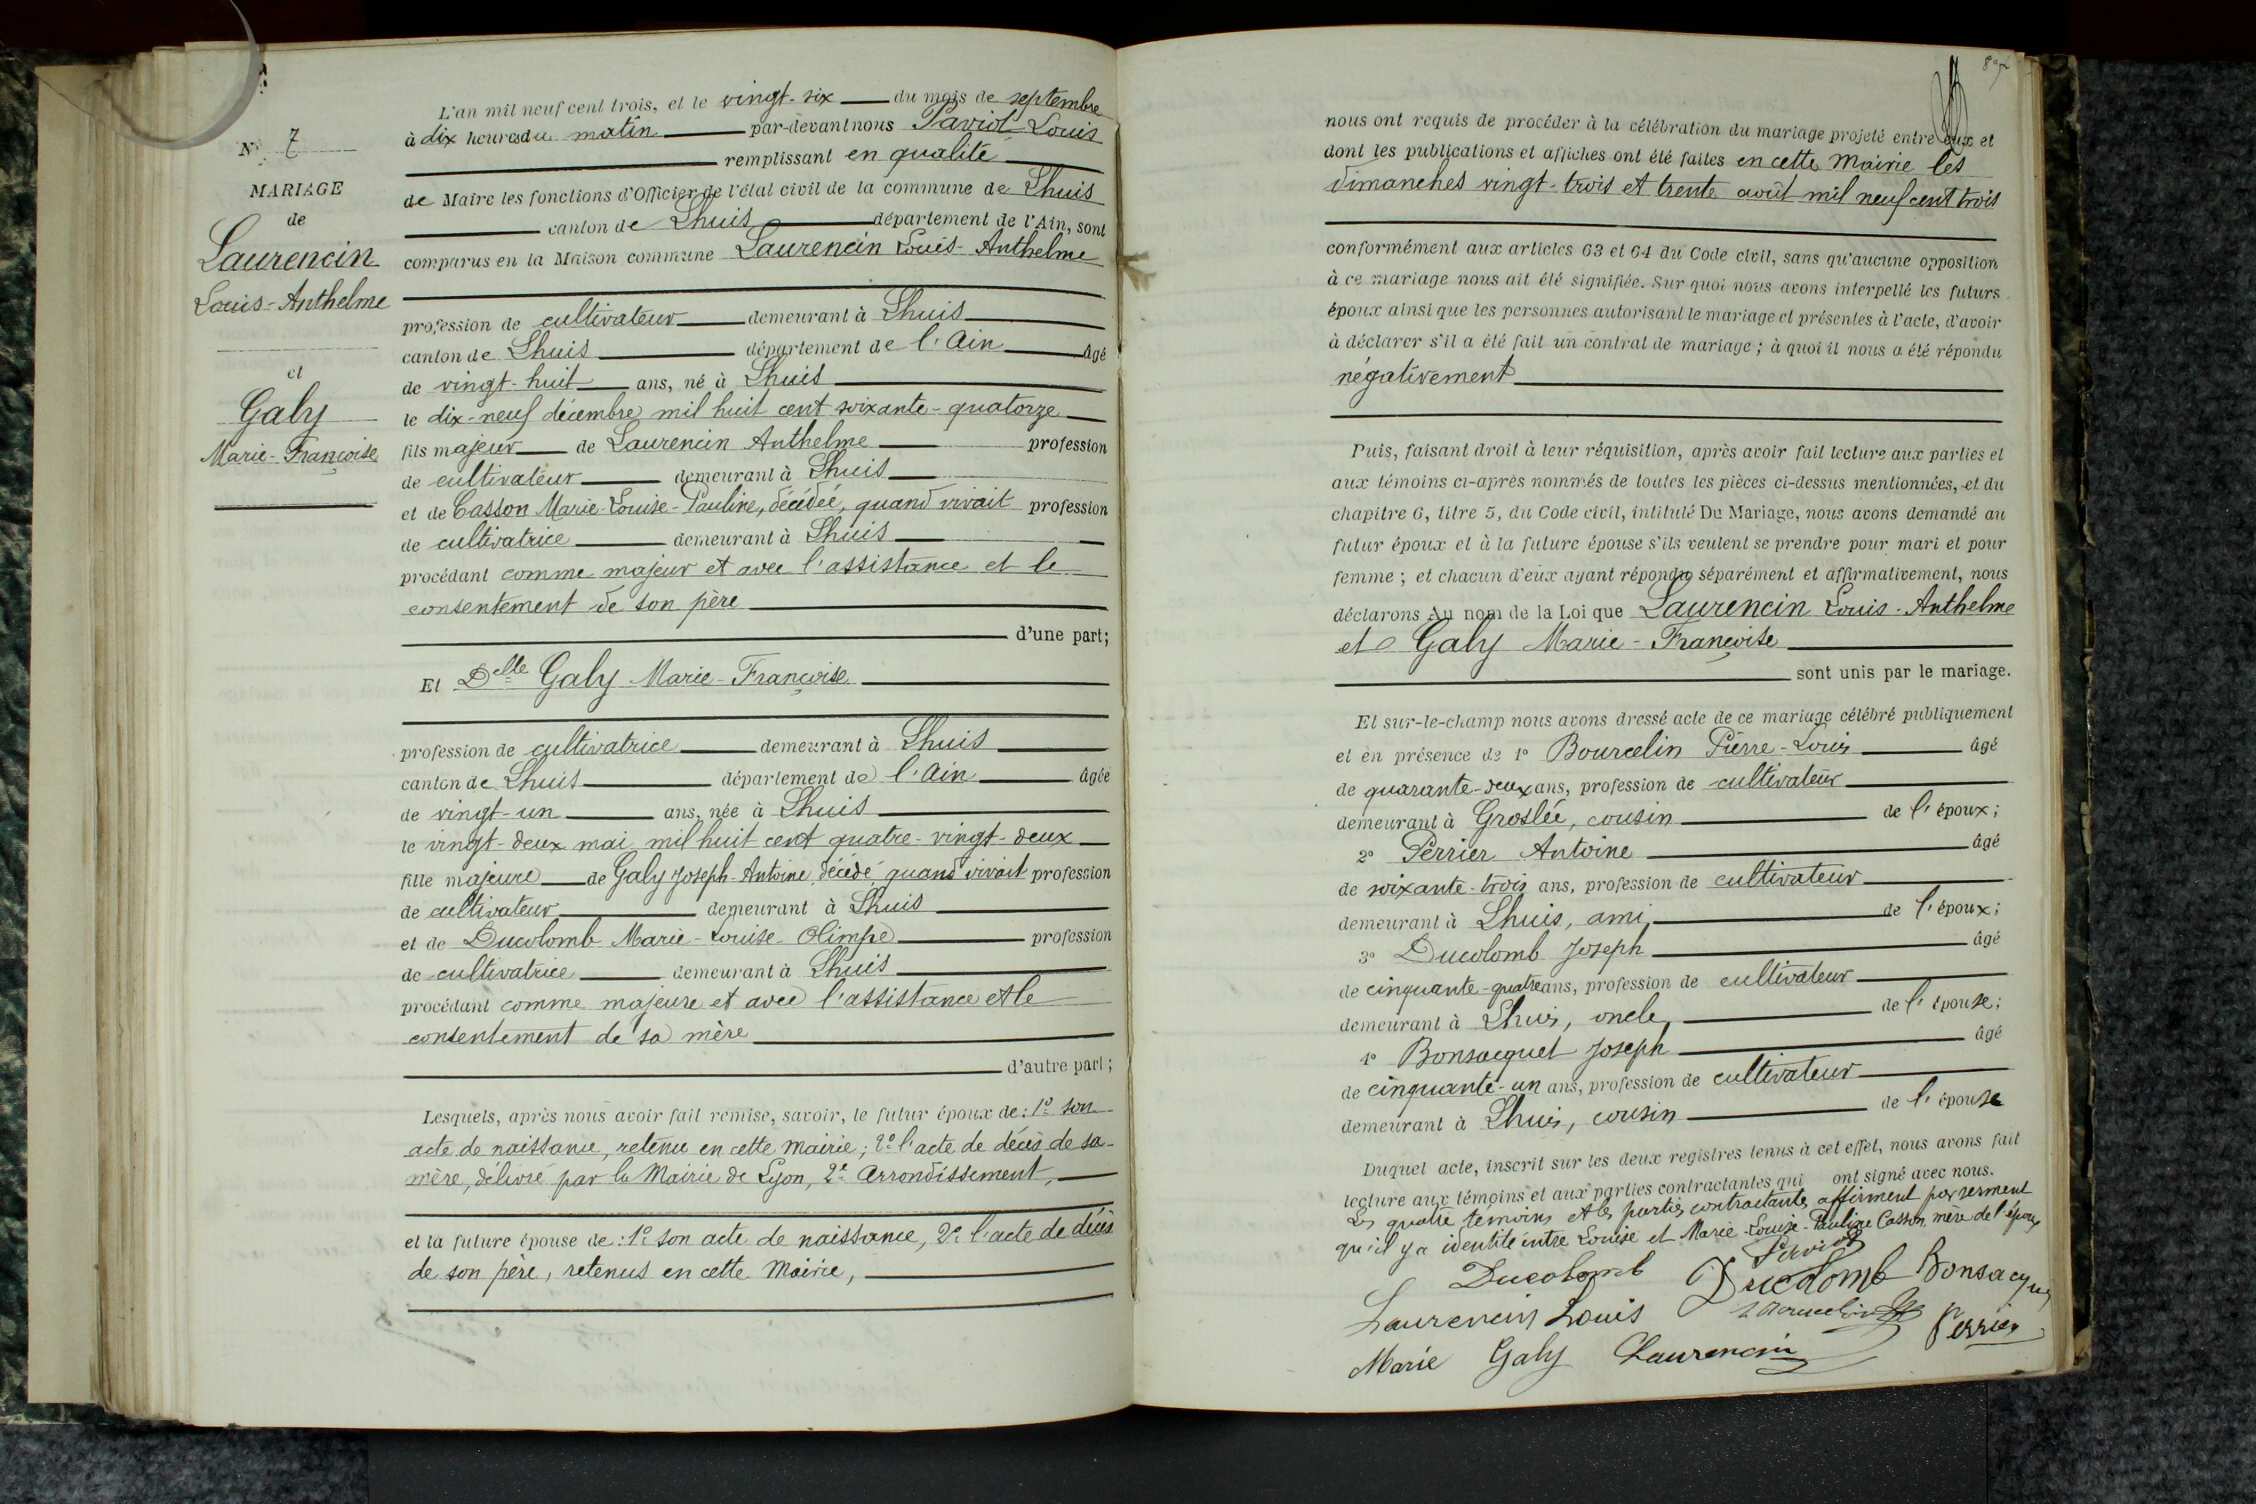 N° 7
MARIAGE
de
Laurencin
Louis-Anthelme
et
Galy
Marie-Françoise
L'an mil neuf cent trois, et le vingt-six du mois de septembre
à dix heures du matin par-devant nous Paviot Louis
remplissant en qualité
de Maire les fonctions d'Officier de l'état civil de la commune de Lhuis
canton de Lhuis département de l'Ain, sont
comparus en la Maison commune Laurencin Louis-Anthelme
profession de cultivateur demeurant à Lhuis
canton de Lhuis département de l'Ain âgé
de vingt-huit ans, né à Lhuis
le dix-neuf décembre mil huit cent soixante-quatorze
fils majeur de Laurencin Anthelme profession
de cultivateur demeurant à Lhuis
et de Casson Marie-Louise-Pauline, décédée, quand vivait profession
de cultivatrice demeurant à Lhuis
procédant comme majeur et avec l'assistance et le
consentement de son père
d'une part;
Et Delle Galy Marie-Françoise
profession de cultivatrice demeurant à Lhuis
canton de Lhuis département de l'Ain âgée
de vingt-un ans, née à Lhuis
le vingt-deux mai mil huit cent quatre-vingt-deux
fille majeure de Galy Joseph-Antoine, décédé, quand vivait profession
de cultivateur demeurant à Lhuis
et de Ducolomb Marie-Louise-Olimpe profession
de cultivatrice demeurant à Lhuis
procédant comme majeure et avec l'assistance et le
consentement de sa mère
d'autre part;
Lesquels, après nous avoir fait remise, savoir, le futur époux de: 1° son
acte de naissance, retenu en cette Mairie; 2° l'acte de décès de sa
mère, délivré par la Mairie de Lyon, 2e Arrondissement,
et la future épouse de: 1° son acte de naissance, 2° l'acte de décès
de son père, retenus en cette Mairie,
nous ont requis de procéder à la célébration du mariage projeté entre eux et
dont les publications et affiches ont été faites en cette Mairie les
dimanches vingt-trois et trente août mil neuf cent trois
conformément aux articles 63 et 64 du Code civil, sans qu'aucune opposition
à ce mariage nous ait été signifiée. Sur quoi nous avons interpellé les futurs
époux ainsi que les personnes autorisant le mariage et présentes à l'acte, d'avoir
à déclarer s'il a été fait un contrat de mariage; à quoi il nous a été répondu
négativement
Puis, faisant droit à leur réquisition, après avoir fait lecture aux parties et
aux témoins ci-après nommés de toutes les pièces ci-dessus mentionnées, et du
chapitre 6, titre 5, du Code civil, intitulé Du Mariage, nous avons demandé au
futur époux et à la future épouse s'ils veulent se prendre pour mari et pour
femme; et chacun d'eux ayant répondu séparément et affirmativement, nous
déclarons Au nom de la Loi que Laurencin Louis-Anthelme
et Galy Marie-Françoise
sont unis par le mariage.
Et sur-le-champ nous avons dressé acte de ce mariage célébré publiquement
et en présence de 1° Bourcelin Pierre-Louis âgé
de quarante-deux ans, profession de cultivateur
demeurant à Groslée, cousin de l'époux;
2° Perrier Antoine âgé
de soixante-trois ans, profession de cultivateur
demeurant à Lhuis, ami de l'époux;
3° Ducolomb Joseph âgé
de cinquante-quatre ans, profession de cultivateur
demeurant à Lhuis, oncle, de l'épouse;
4° Bonsacquet Joseph âgé
de cinquante-un ans, profession de cultivateur
demeurant à Lhuis, cousin de l'épouse
Duquel acte, inscrit sur les deux registres tenus à cet effet, nous avons fait
lecture aux témoins et aux parties contractantes qui ont signé avec nous.
Les quatre témoins et les parties contractantes affirment par serment
qu'il y a identité entre Louise et Marie-Louise-Pauline Casson, mère de l'époux
Ducolomb Ducolomb
Laurencin Louis Perrier
Marie Galy Laurencin